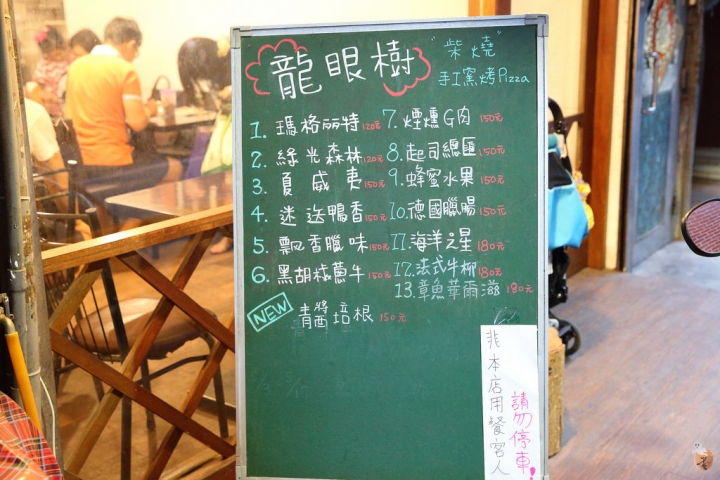 龍眼樹
"柴燒"
手工窯烤Pizza
1. 瑪格丽特 120元
2. 綠光森林 120元
3. 夏威夷 150元
4. 迷迭鴨香 150元
5. 飄香臘味 150元
6. 黑胡椒蔥牛 150元
7. 煙燻G肉 150元
8. 起司總匯 150元
9. 蜂蜜水果 150元
10. 德國臘腸 150元
11. 海洋之星 180元
12. 法式牛柳 180元
13. 章魚華爾滋 180元
NEW 青醬培根 150元
非本店用餐客人
請勿停車!